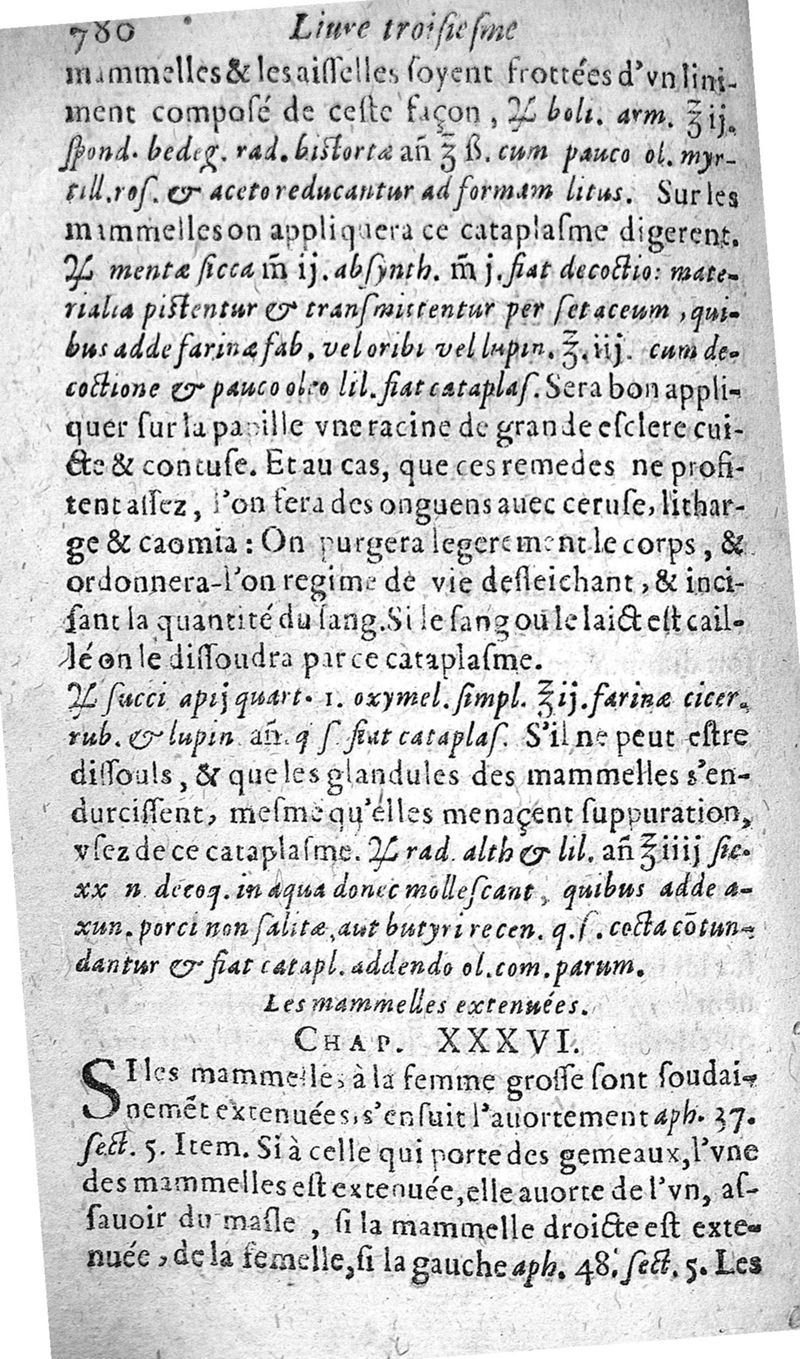 780 Liure troisiesme
mammelles & les aisselles soyent frottées d'vn lini-
ment composé de ceste façon, ℞ boli. arm. ℥ ij.
spond. bedeg. rad. bistortæ añ ℥ ß. cum pauco ol. myr-
till. ros. & aceto reducantur ad formam litus. Sur les
mammelles on appliquera ce cataplasme digerent.
℞ mentæ sicca m̃ ij. absynth. m̃ j. fiat decoctio: mate-
rialia pistentur & transmittentur per setaceum, qui-
bus adde farinæ fab, vel oribi vel lupin. ℥. iij. cum de-
coctione & pauco oleo lil. fiat cataplas. Sera bon appli-
quer sur la papille vne racine de grande esclere cui-
cte & contuse. Et au cas, que ces remedes ne profi-
tent assez, l'on fera des onguens auec ceruse, lithar-
ge & caomia : On purgera legerement le corps, &
ordonnera-l'on regime de vie desseichant, & inci-
sant la quantité du sang. Si le sang ou le laict est cail-
lé on le dissoudra par ce cataplasme.
℞ succi apij quart. 1. oxymel. simpl. ℥ ij. farinæ cicer.
rub. & lupin añ. q s. fiat cataplas. S'il ne peut estre
dissouls, & que les glandules des mammelles s'en-
durcissent, mesme qu'elles menaçent suppuration,
vsez de ce cataplasme. ℞ rad. alth & lil. añ ℥ iiij sic.
xx n decoq. in aqua donec mollescant, quibus adde a-
xun. porci non salitæ, aut butyri recen. q. s. cocta cõtun-
dantur & fiat catapl. addendo ol. com. parum.
Les mammelles extenuées.
CHAP. XXXVI.
SI les mammelles à la femme grosse sont soudai-
nemẽt extenuées, s'ensuit l'auortement aph. 37.
sect. 5. Item. Si à celle qui porte des gemeaux, l'vne
des mammelles est extenuée, elle auorte de l'vn, as-
sauoir du masle, si la mammelle droicte est exte-
nuée, de la femelle, si la gauche aph. 48. sect. 5. Les